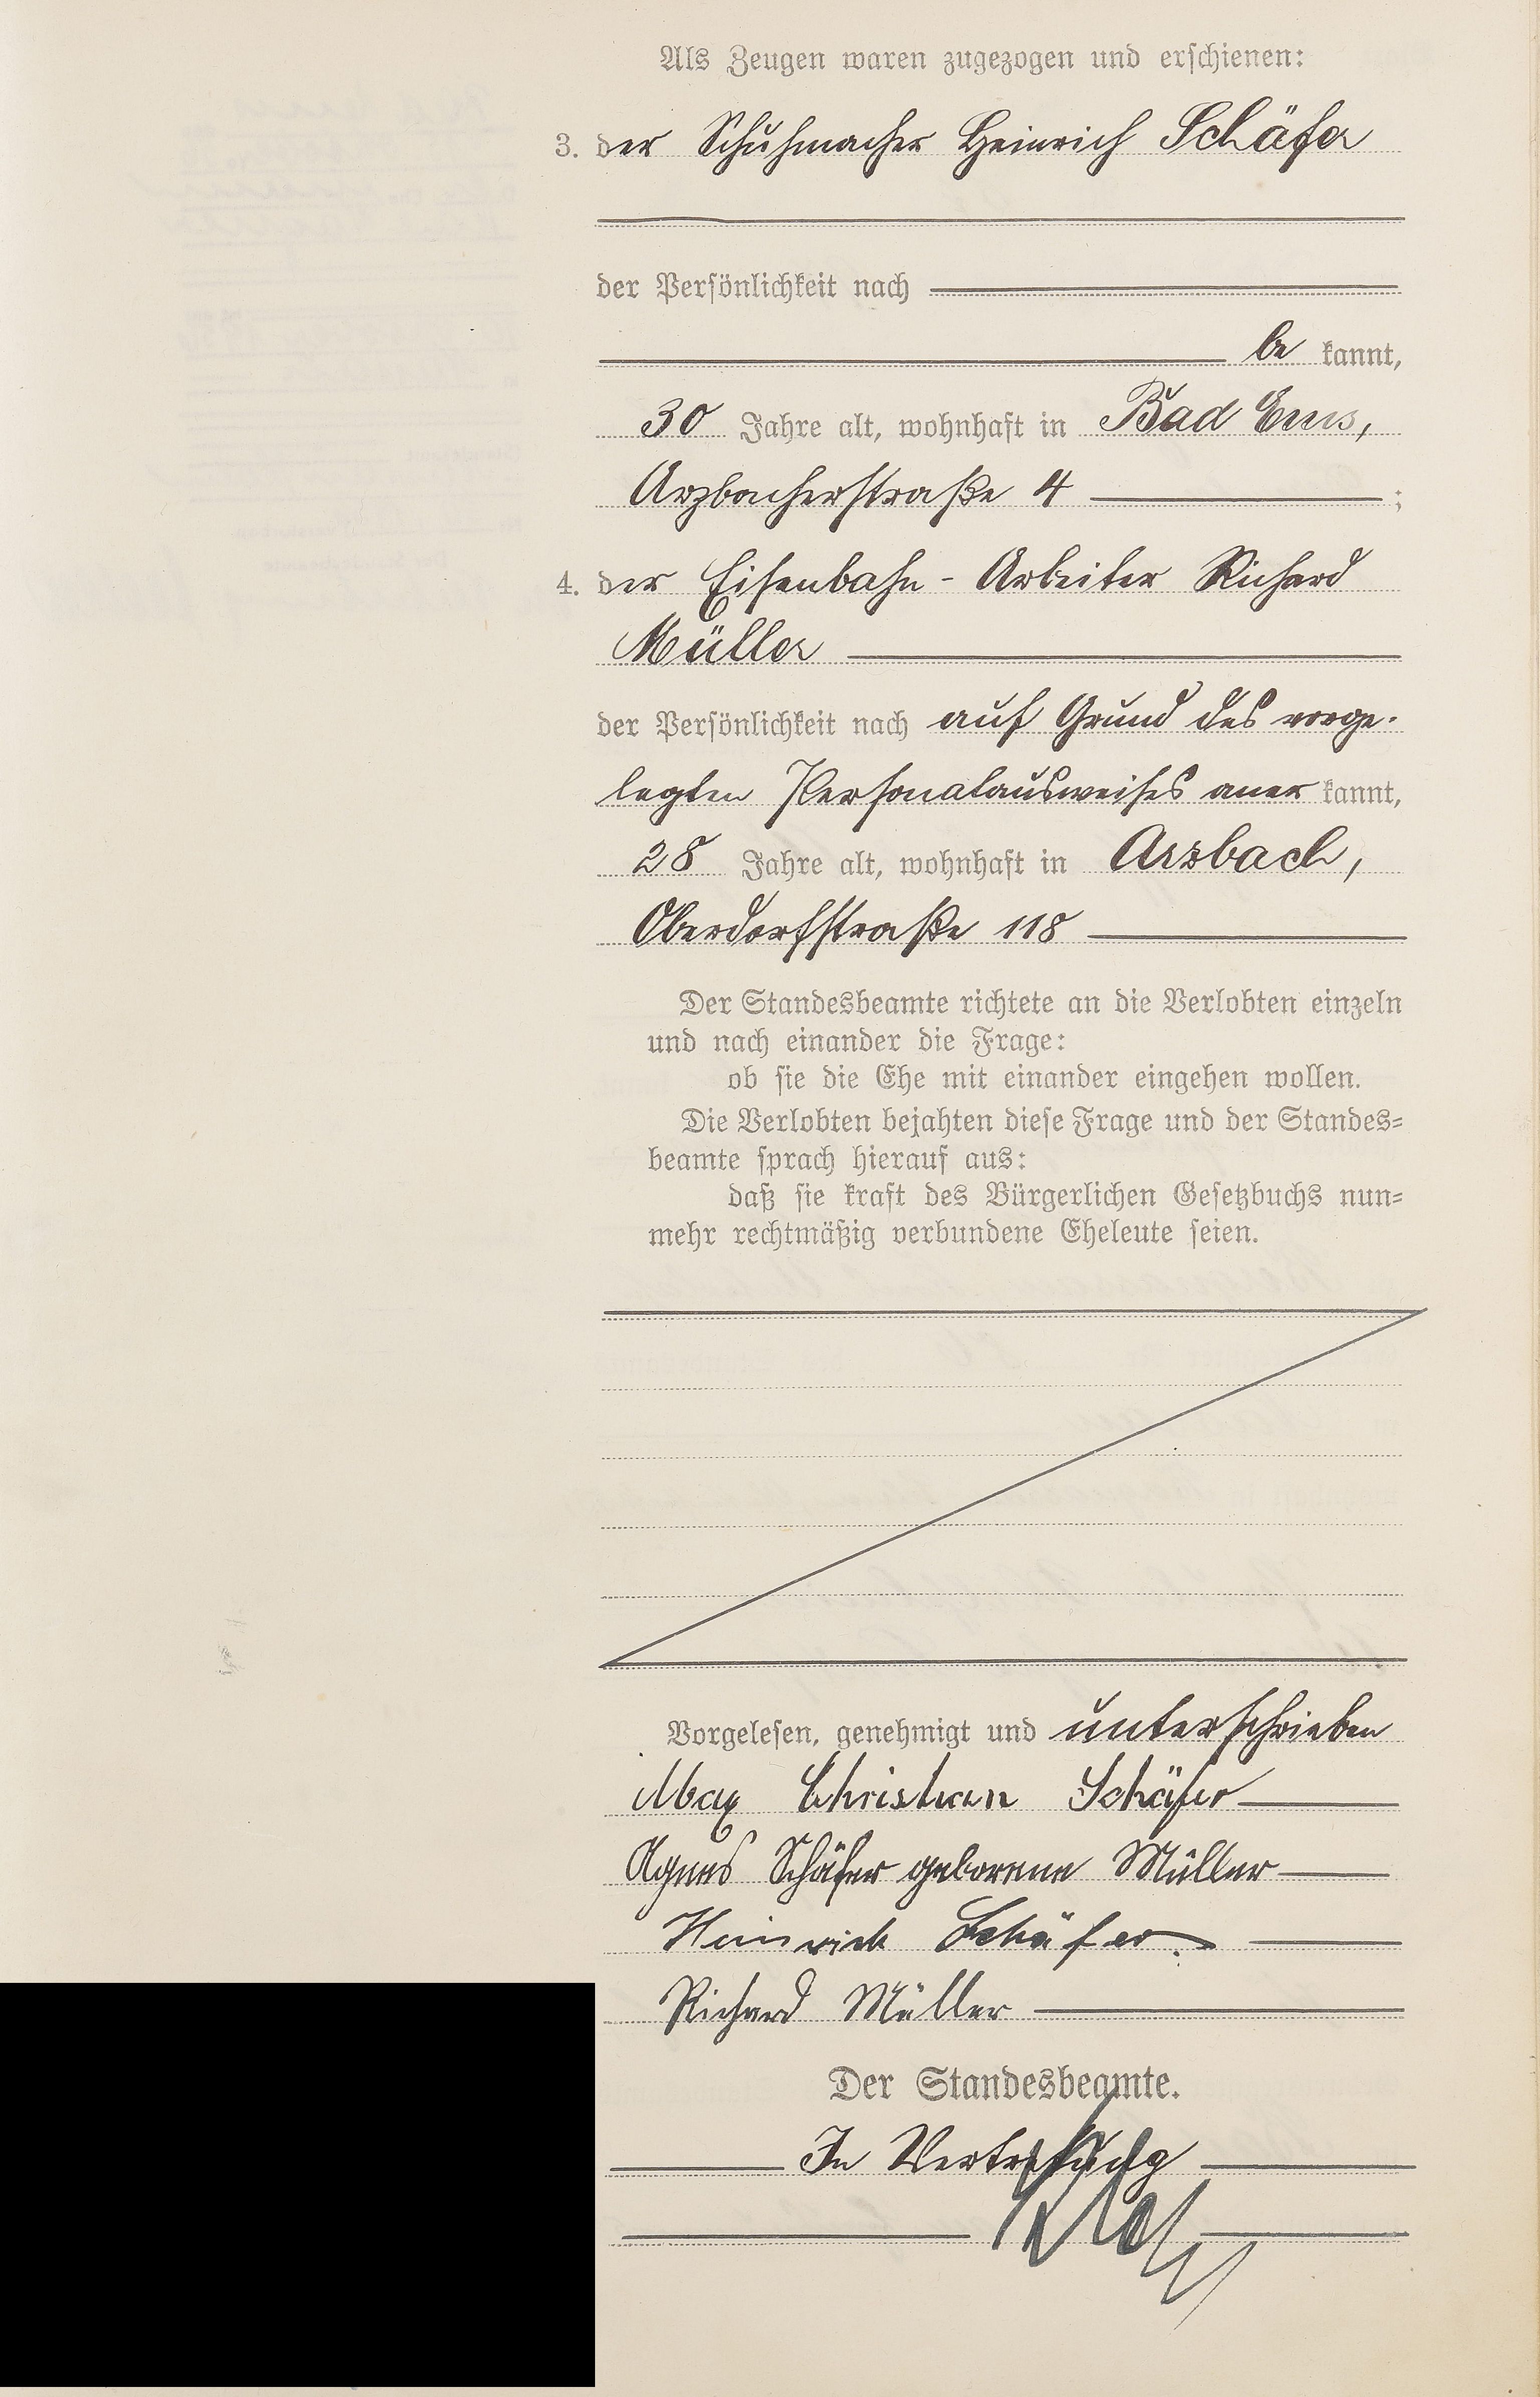 Als Zeugen waren zugezogen und erschienen:
3. der Schuhmacher Heinrich Schäfer
der Persönlichkeit nach
be kannt,
30 Jahre alt, wohnhaft in Bad Ems,
Arzbacherstraße 4 ;
4. der Eisenbahn-Arbeiter Richard
Müller
der Persönlichkeit nach auf Grund des vorge-
legten Personalausweises aner kannt,
28 Jahre alt, wohnhaft in Arzbach,
Oberdorfstraße 118
Der Standesbeamte richtete an die Verlobten einzeln
und nach einander die Frage:
ob sie die Ehe mit einander eingehen wollen.
Die Verlobten bejahten diese Frage und der Standes-
beamte sprach hierauf aus:
daß sie kraft des Bürgerlichen Gesetzbuchs nun-
mehr rechtmäßig verbundene Eheleute seien.
Vorgelesen, genehmigt und unterschrieben
Max Christian Schäfer
Agnes Schäfer geborene Müller
Heinrich Schäfer.
Richard Müller
Der Standesbeamte.
In Vertretung